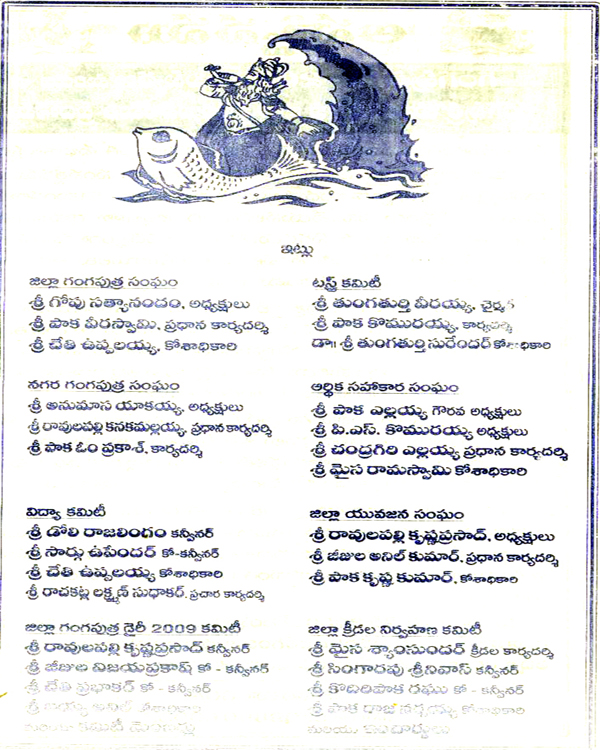 ఇట్లు
జిల్లా గంగపుత్ర సంఘం
శ్రీ గోపు సత్యానందం, అధ్యక్షులు
శ్రీ పాక వీరస్వామి, ప్రధాన కార్యదర్శి
శ్రీ చేతి ఉప్పలయ్య, కోశాధికారి
నగర గంగపుత్ర సంఘం
శ్రీ అనుమాస యాకయ్య, అధ్యక్షులు
శ్రీ రావులపల్లి కనకమల్లయ్య, ప్రధాన కార్యదర్శి
శ్రీ పాక ఓం ప్రకాశ్, కార్యదర్శి
విద్యా కమిటీ
శ్రీ డోలి రాజలింగం కన్వీనర్
శ్రీ సార్గు ఉపేందర్ కో-కన్వీనర్
శ్రీ చేతి ఉప్పలయ్య కోశాధికారి
శ్రీ రాచకట్ల లక్ష్మణ్ సుధాకర్, ప్రచార కార్యదర్శి
జిల్లా గంగపుత్ర డైరీ 2009 కమిటీ
శ్రీ రావులపల్లి కృష్ణప్రసాద్ కన్వీనర్
శ్రీ జీజుల విజయప్రకాష్ కో - కన్వీనర్
శ్రీ చేతి ప్రభాకర్ కో - కన్వీనర్
శ్రీ అనిల్
కమిటీ
టస్ట్ర్ కమిటీ
శ్రీ తుంగతుర్తి వీరయ్య,
శ్రీ పాక కొమురయ్య,
డా॥ శ్రీ తుంగతుర్తి సురేందర్
ఆర్థిక సహాకార సంఘం
శ్రీ పాక ఎల్లయ్య గౌరవ అధ్యక్షులు
శ్రీ పి.ఎస్. కొమురయ్య అధ్యక్షులు
శ్రీ చంద్రగిరి ఎల్లయ్య ప్రధాన కార్యదర్శి
శ్రీ మైస రామస్వామి కోశాధికారి
జిల్లా యువజన సంఘం
శ్రీ రావులపల్లి కృష్ణప్రసాద్, అధ్యక్షులు
శ్రీ జీజుల అనిల్ కుమార్, ప్రధాన కార్యదర్శి
శ్రీ పాక కృష్ణ కుమార్, కోశాధికారి
జిల్లా క్రీడల నిర్వహణ కమిటీ
శ్రీ మైస శ్యాంసుందర్ క్రీడల కార్యదర్శి
శ్రీ సింగారపు శ్రీనివాస్ కన్వీనర్
శ్రీ కొదిరిపాక రఘు కో - కన్వీనర్
శ్రీ పాక రాజ కోశాధికారి